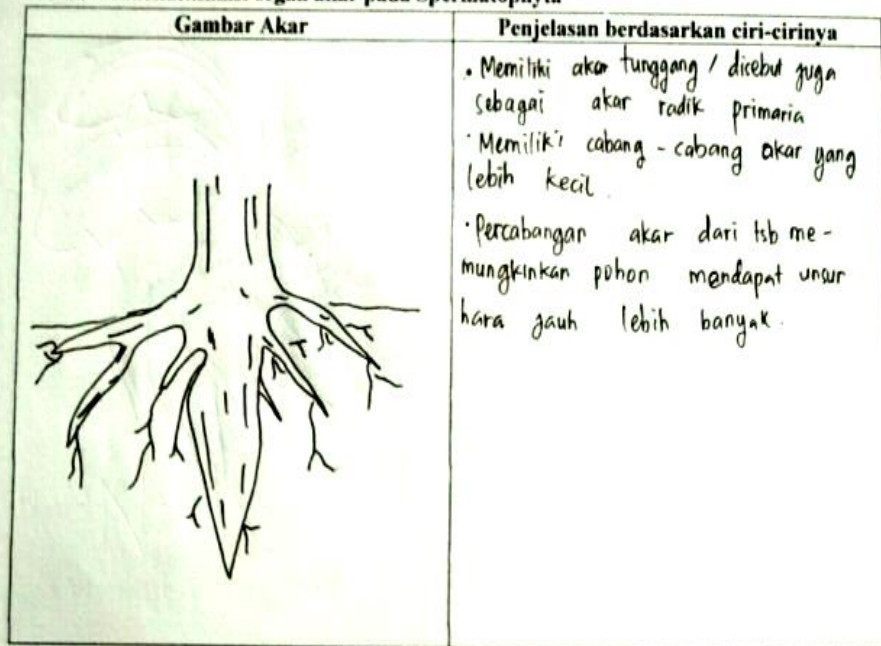 organ akar pada Spermatophyta
Gambar Akar
Penjelasan berdasarkan ciri-cirinya
• Memiliki akar tunggang / dicebut juga
sebagai akar radik primaria
· Memiliki cabang - cabang akar yang
lebih kecil.
· Percabangan akar dari tsb me-
mungkinkan pohon mendapat unsur
hara jauh lebih banyak.